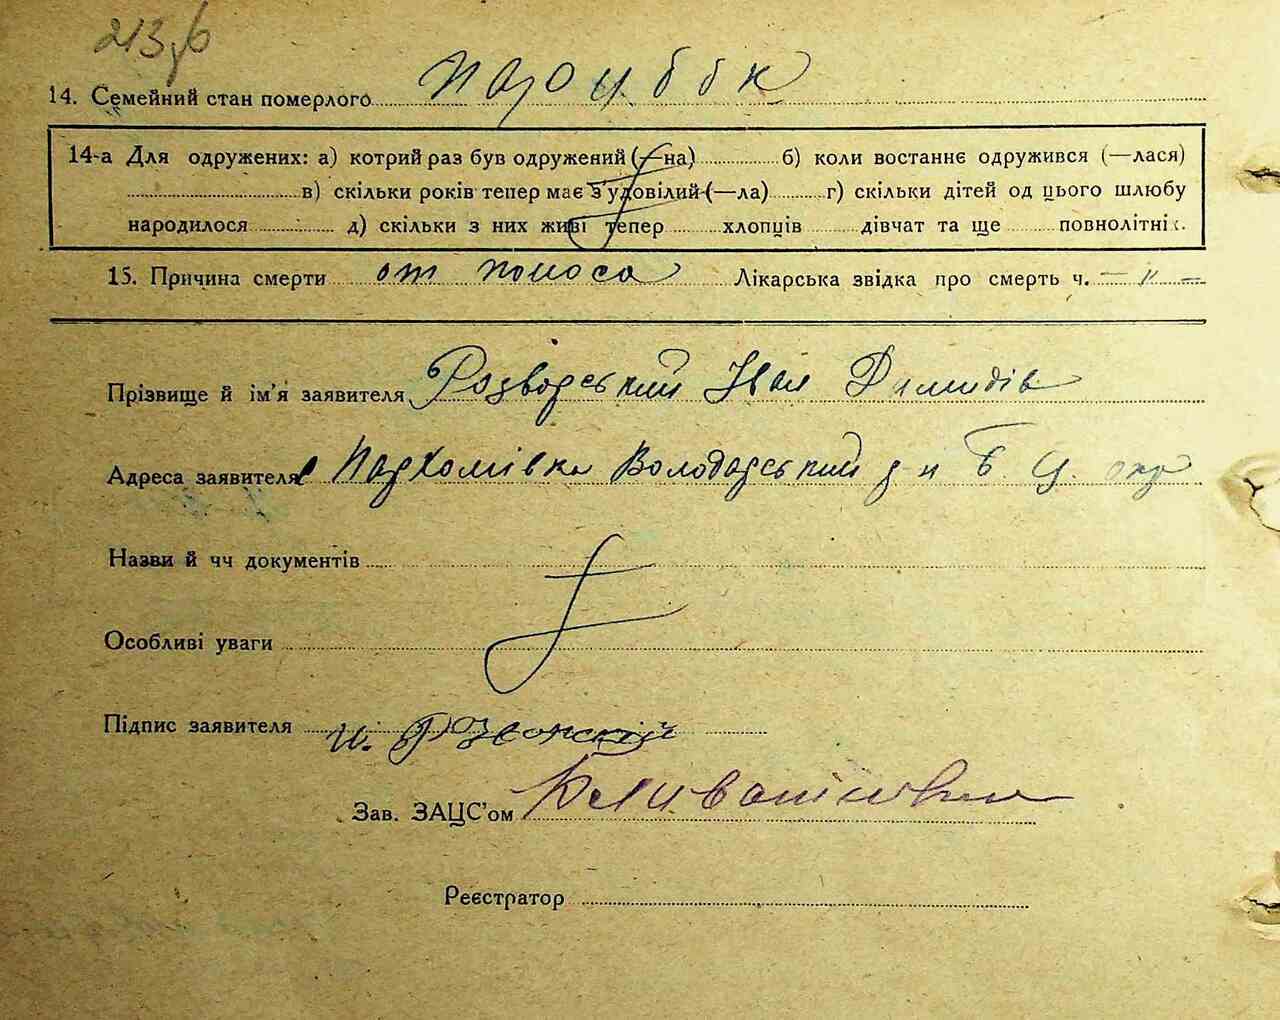 213
14. Семейний стан померлого парубок
14-а Для одружених: а) котрий раз був одружений (—на) б) коли востаннє одружився (—лася)
в) скільки років тепер має з'удовілий (—ла) г) скільки дітей од цього шлюбу
народилося д) скільки з них живі тепер хлопців дівчат та ще повнолітніх.
15. Причина смерти от поноса Лікарська звідка про смерть ч. — " —
Прізвище й ім'я заявителя Розводський Іван Демидів
Адреса заявителя с Пархомівка Володарський р н Б. Ц. окр
Назви й чч документів
Особливі уваги
Підпис заявителя И.
Зав. ЗАЦС'ом
Реєстратор